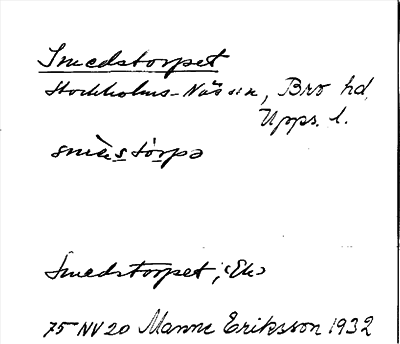 Smedstorpet
Stockholms-Näs sn, Bro hd,
Upps. l.
smè̀stórpə
Smedstorpet, Ek
75 NV 20 Manne Eriksson 1932